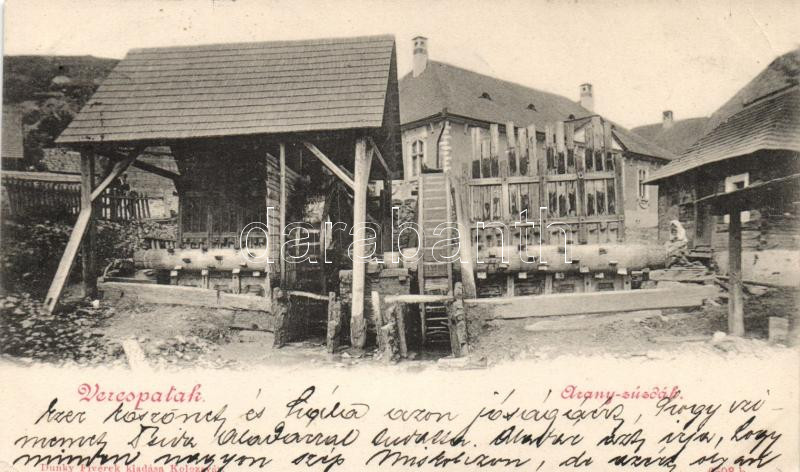 darabanth
Verespatak. Arany-zúzdák.
Ezer köszönet és hála azon jóságáért, hogy címemet Aladárral tudatta. Aladár azt írja, hogy
minden nagyon szép Miskolczon, de azért olyan
Dunky Fivérek kiadása Kolozsvár